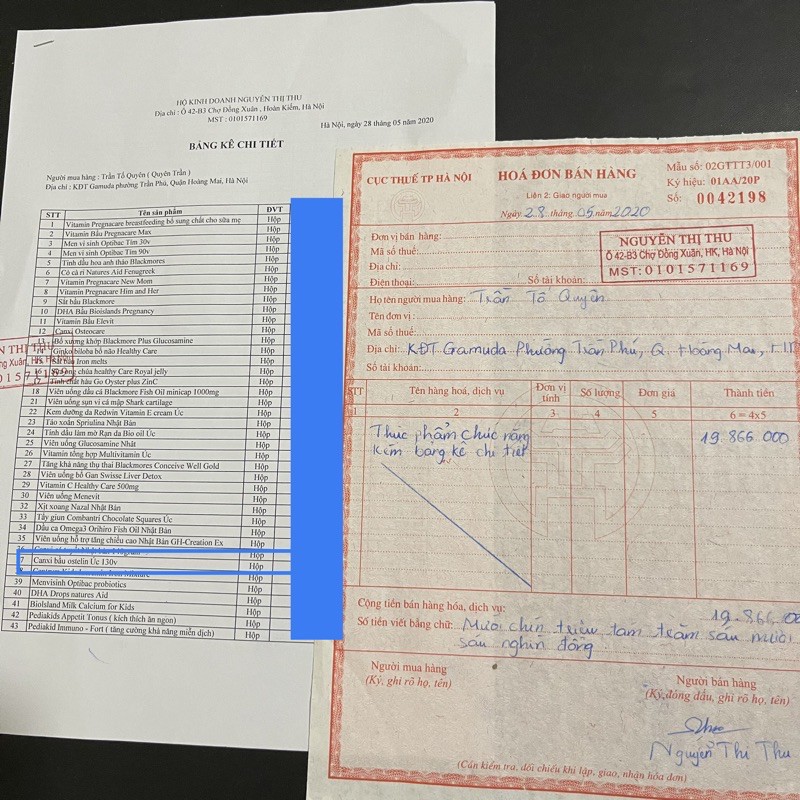 HỘ KINH DOANH NGUYỄN THỊ THU
Địa chỉ : Ô 42-B3 Chợ Đồng Xuân , Hoàn Kiếm, Hà Nội
MST : 0101571169
Hà Nội, ngày 28 tháng 05 năm 2020
BẢNG KÊ CHI TIẾT
Người mua hàng : Trần Tố Quyên ( Quyên Trần )
Địa chỉ : KĐT Gamuda phường Trần Phú, Quận Hoàng Mai, Hà Nội
STT Tên sản phẩm ĐVT
1 Vitamin Pregnacare breastfeeding bổ sung chất cho sữa mẹ Hộp
2 Vitamin Bầu Pregnacare Max Hộp
3 Men vi sinh Optibac Tím 30v Hộp
4 Men vi sinh Optibac Tím 90v Hộp
5 Tinh dầu hoa anh thảo Blackmores Hộp
6 Cỏ cà ri Natures Aid Fenugreek Hộp
7 Vitamin Pregnacare New Mom Hộp
8 Vitamin Pregnacare Him and Her Hộp
9 Sắt bầu Blackmore Hộp
10 DHA Bầu Bioislands Pregnancy Hộp
11 Vitamin Bầu Elevit Hộp
12 Canxi Osteocare Hộp
13 Bổ xương khớp Blackmore Plus Glucosamine Hộp
14 Ginkobiloba bổ não Healthy Care Hộp
Iron melts Hộp
16 chúa healthy Care Royal jelly Hộp
17 chất hàu Go Oyster plus ZinC Hộp
18 Viên uống dầu cá Blackmore Fish Oil minicap 1000mg Hộp
21 Viên uống sụn vi cá mập Shark cartilage Hộp
22 Kem dưỡng da Redwin Vitamin E cream Úc Hộp
23 Tảo xoắn Spriulina Nhật Bản Hộp
24 Tinh dầu làm mờ Rạn da Bio oil Úc Hộp
25 Viên uống Glucosamine Nhật Hộp
26 Vitamin tổng hợp Multivitamin Úc Hộp
27 Tăng khả năng thụ thai Blackmores Conceive Well Gold Hộp
28 Viên uống bổ Gan Swisse Liver Detox Hộp
29 Vitamin C Healthy Care 500mg Hộp
30 Viên uống Menevit Hộp
32 Xịt xoang Nazal Nhật Bản Hộp
33 Tẩy giun Combantri Chocolate Squares Úc Hộp
34 Dầu ca Omega3 Orihiro Fish Oil Nhật Bản Hộp
35 Viên uống hỗ trợ tăng chiều cao Nhật Bản GH-Creation Ex Hộp
Hộp
7 Canxi bầu ostelin Úc 130v Hộp
Hộp
39 Menvisinh Optibac probiotics Hộp
40 DHA Drops natures Aid Hộp
41 BioIsland Milk Calcium for Kids Hộp
42 Pediakids Appetit Tonus ( kích thích ăn ngon) Hộp
43 Pediakid Immuno - Fort ( tăng cường khả năng miễn dịch) Hộp
N THỊ THU
CỤC THUẾ TP HÀ NỘI
HOÁ ĐƠN BÁN HÀNG
Liên 2: Giao người mua
Ngày 28 tháng 05 năm 2020
Mẫu số: 02GTTT3/001
Ký hiệu: 01AA/20P
Số: 0042198
Đơn vị bán hàng:
Mã số thuế:
Địa chỉ:
Điện thoại: Số tài khoản:
NGUYỄN THỊ THU
Ô 42-B3 Chợ Đồng Xuân, HK, Hà Nội
MST: 0101571169
Họ tên người mua hàng: Trần Tố Quyên
Tên đơn vị:
Mã số thuế:
Địa chỉ: KĐT Gamuda Phường Trần Phú, Q. Hoàng Mai, HN
Số tài khoản:
STT Tên hàng hoá, dịch vụ Đơn vị tính Số lượng Đơn giá Thành tiền
1 2 3 4 5 6 = 4x5
Thực phẩm chức năng 19.866.000
Kèm bảng kê chi tiết
Cộng tiền bán hàng hóa, dịch vụ: 19.866.00
Số tiền viết bằng chữ: Mười chín triệu tám trăm sáu mươi
sáu nghìn đồng
Người mua hàng
(Ký, ghi rõ họ, tên)
Người bán hàng
(Ký, đóng dấu, ghi rõ họ, tên)
Nguyễn Thị Thu
(Cần kiểm tra, đối chiếu khi lập, giao, nhận hóa đơn)